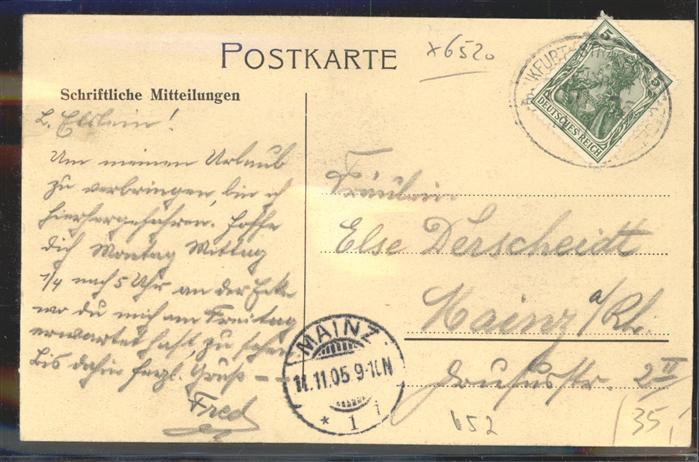 POSTKARTE
x6520
Schriftliche Mitteilungen
L. Elslein!
Um meinen Urlaub
zu verbringen, bin ich
hierhergefahren. Hoffe
dich Montag Mittag
1/4 nach 5 Uhr an der Ecke
wo du mich am Freitag
erwartet hast, zu sehen
Bis dahin herzl. Gruß
Fred
5
DEUTSCHES REICH
Fräulein
Else Derscheidt
Mainz a/Rh.
Drususstr. 2 II
MAINZ
11.11.05 9-10N
* 1 i
652
35,